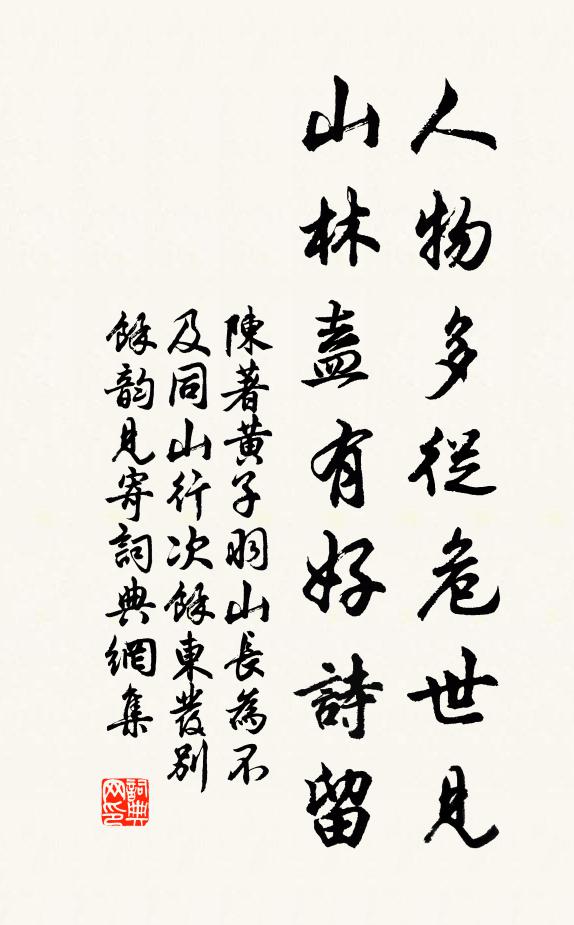 人物多從危世見
山林盍有好詩留
陳著黃子羽山長為不
及同山行次餘東發別
餘韵見寄詞典網集
詞典网印